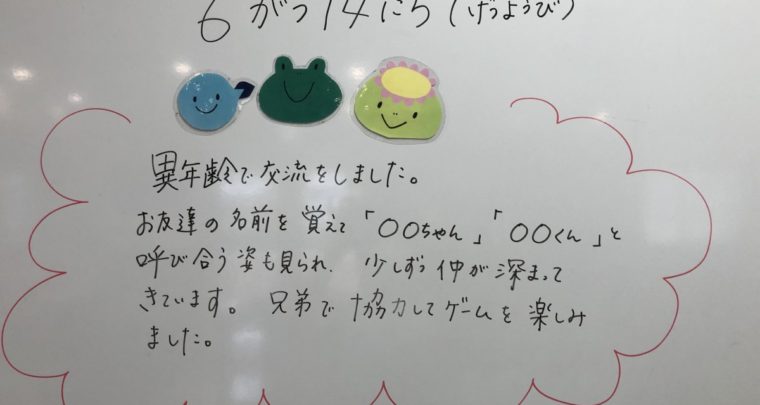 6がつ14にち(げつようび)
異年齢で交流をしました。
お友達の名前を覚えて「〇〇ちゃん」「〇〇くん」と
呼び合う姿も見られ、少しずつ仲が深まって
きています。兄弟で協力してゲームを楽しみ
ました。